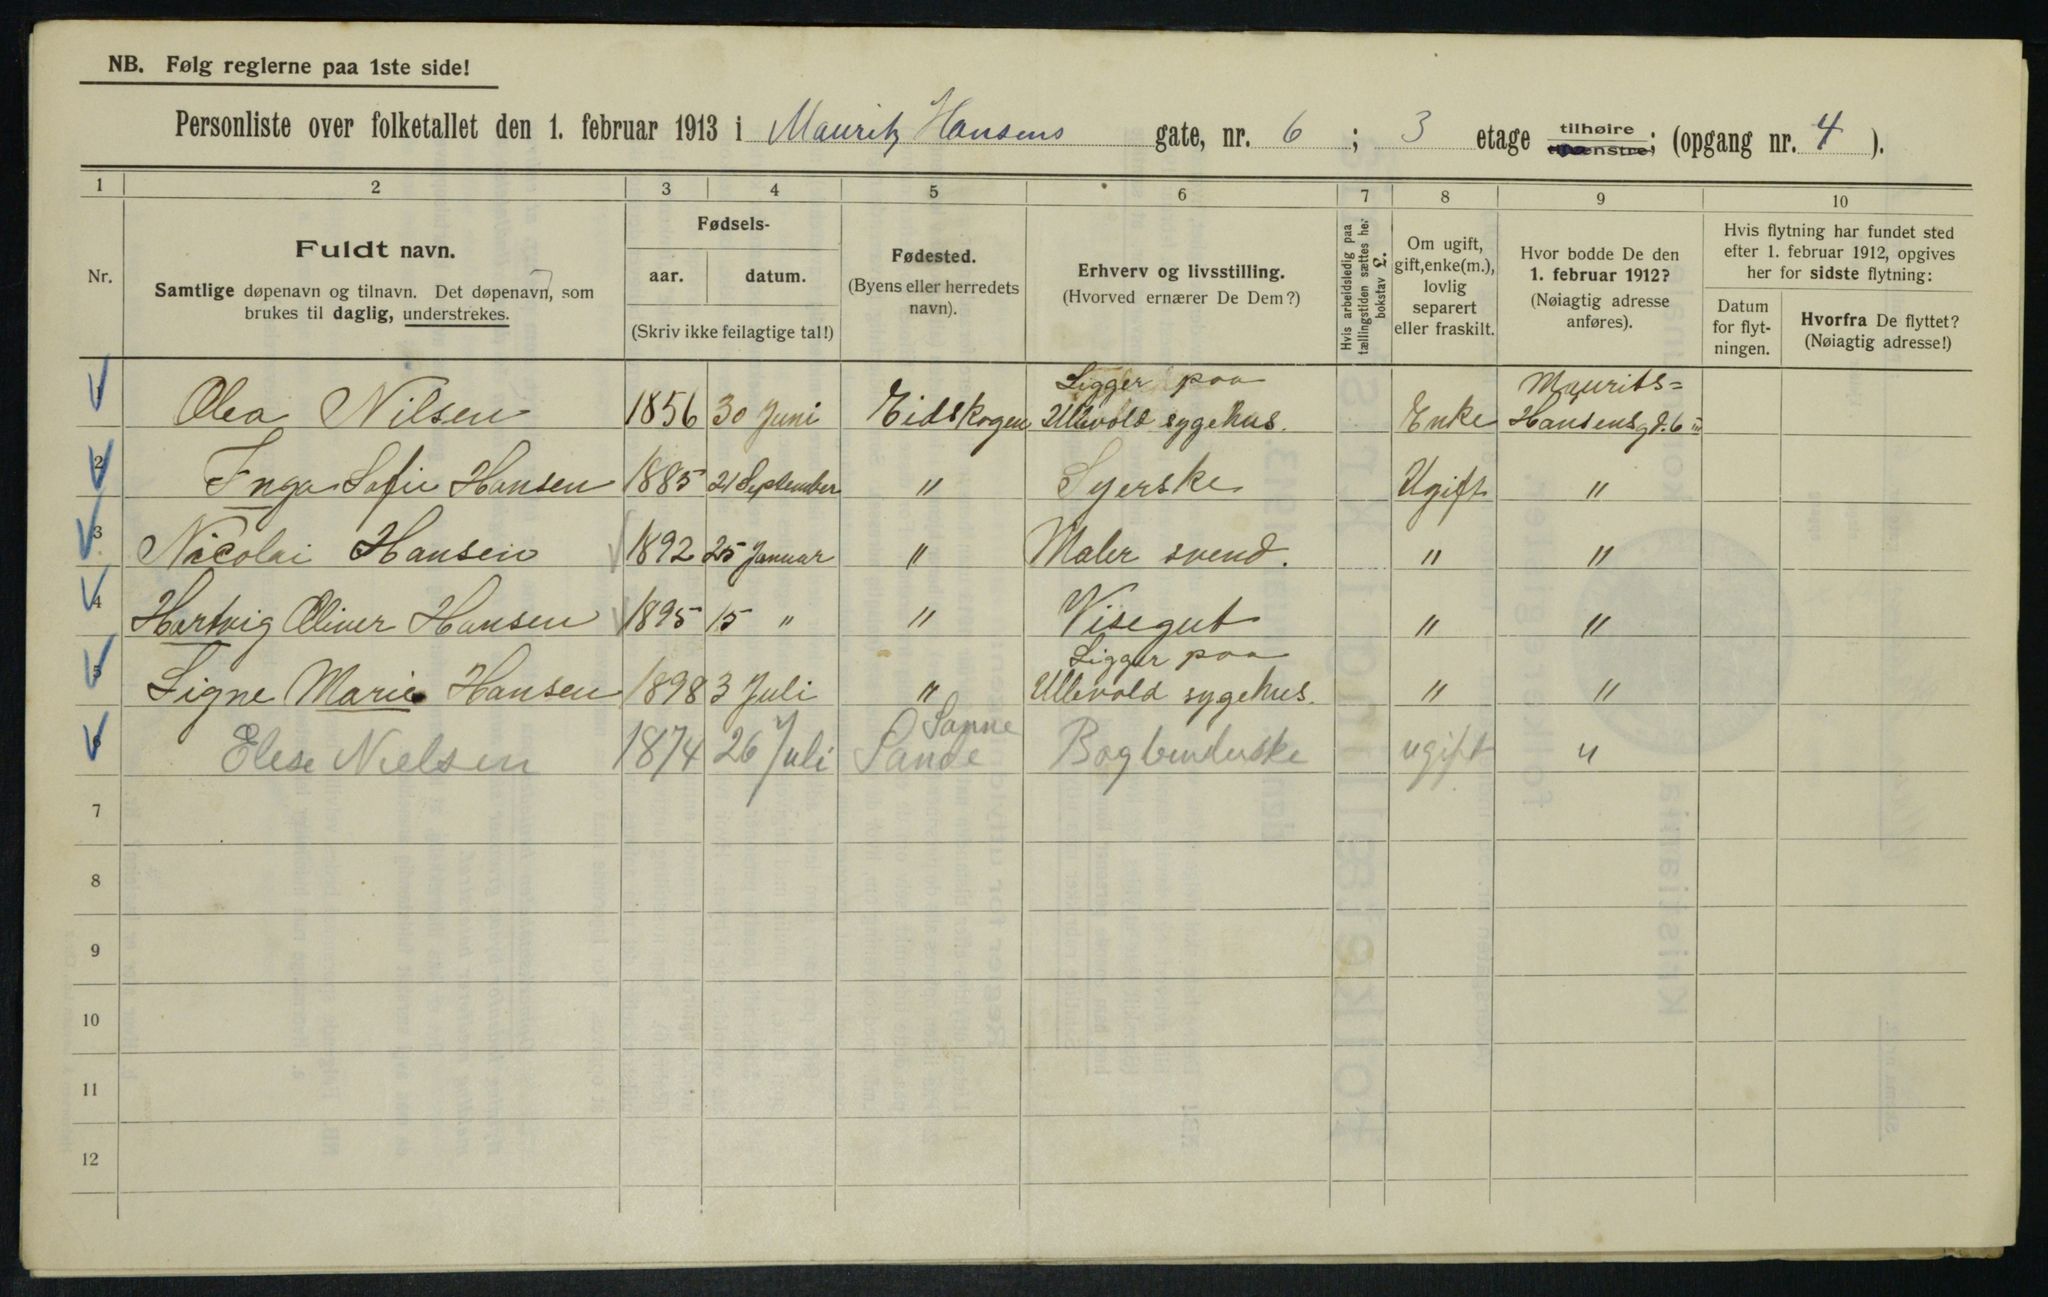 NB. Følg reglerne paa 1ste side!
Personliste over folketallet den 1. februar 1913 i Mauritz Hansens gate, nr. 6 ; 3 etage tilhøire tilvenstre; (opgang nr. 4 ).
1 2 3 4 5 6 7 8 9 10
Nr.
Fuldt navn.
Samtlige døpenavn og tilnavn. Det døpenavn, som
brukes til daglig, understrekes.
Fødsels-
aar. datum.
(Skriv ikke feilagtige tal!)
Fødested.
(Byens eller herredets
navn).
Erhverv og livsstilling.
(Hvorved ernærer De Dem?)
Hvis arbeidsledig paa
tællingstiden sættes her
bokstav L.
Om ugift,
gift, enke(m.),
lovlig
separert
eller fraskilt.
Hvor bodde De den
1. februar 1912?
(Nøiagtig adresse
anføres).
Hvis flytning har fundet sted
efter 1. februar 1912, opgives
her for sidste flytning:
Datum
for flyt-
ningen.
Hvorfra De flyttet?
(Nøiagtig adresse!)
Ligger paa Maurits=
1 Olea Nilsen 1856 30 Juni Eidskogen Ullevold sygehus. Enke Hansensgd. 6 III
2 Inga Sofie Hansen 1885 21 September " Syerske Ugift "
3 Nicolai Hansen 1892 25 Januar " Maler svend. " "
4 Hartvig Oliver Hansen 1895 15 " " Visegut " "
Ligger paa
5 Signe Marie Hansen 1898 3 Juli " Ullevold sygehus. " "
Sanne
6 Elese Nielsen 1874 26 Juli Sande Bogbinderske ugift "
7
8
9
10
11
12